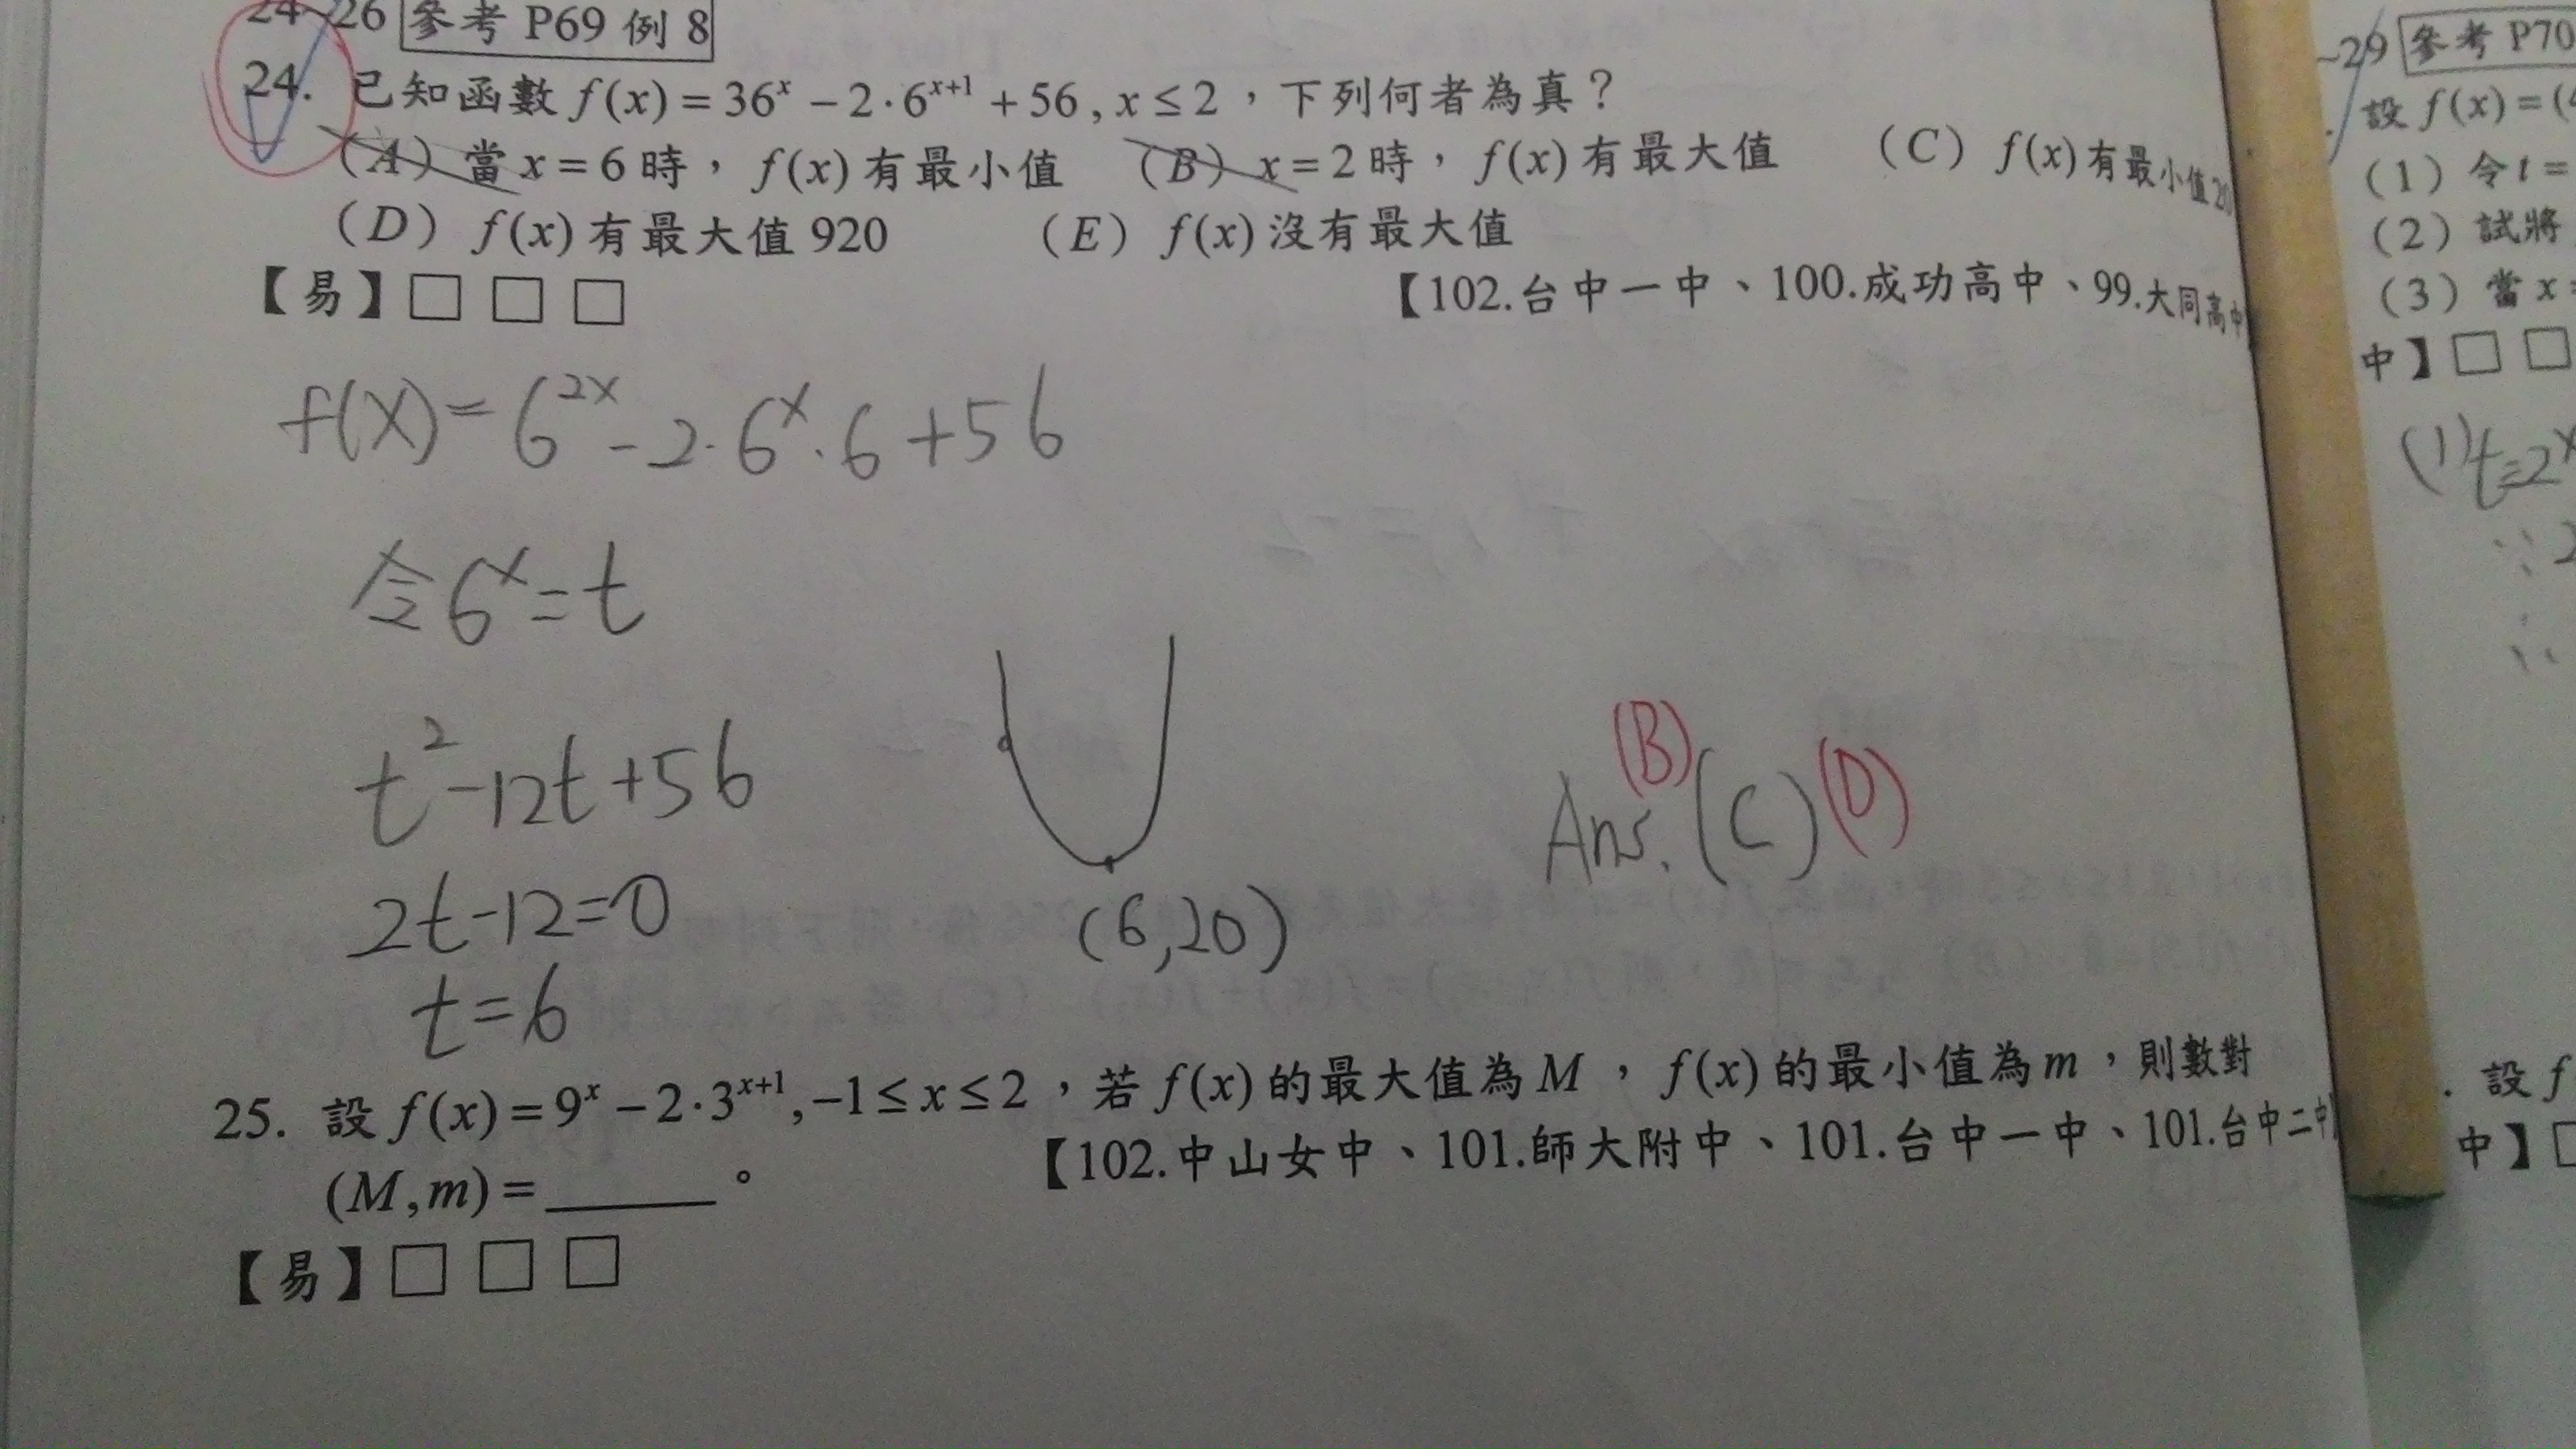 24~26 參考 P69 例 8
24. 已知函數 f(x) = 36^x − 2·6^{x+1} + 56 , x ≤ 2，下列何者為真？
(A) 當 x = 6 時，f(x) 有最小值 (B) x = 2 時，f(x) 有最大值 (C) f(x) 有最小值 20
(D) f(x) 有最大值 920 (E) f(x) 沒有最大值
【易】□ □ □ 【102.台中一中、100.成功高中、99.大同高中
f(x) = 6^{2x} − 2·6^x·6 + 56
令 6^x = t
t^2 − 12t + 56
2t − 12 = 0
t = 6
(6,20)
Ans. (B) (C) (D)
25. 設 f(x) = 9^x − 2·3^{x+1}, −1 ≤ x ≤ 2，若 f(x) 的最大值為 M，f(x) 的最小值為 m，則數對
(M,m) = ______。 【102.中山女中、101.師大附中、101.台中一中、101.台中二中
【易】□ □ □
~29 參考 P70
設 f(x) = (
(1) 令 t =
(2) 試將
(3) 當 x
中】□ □
(1) t = 2^x
∵ 2
∴
. 設 f
中】□